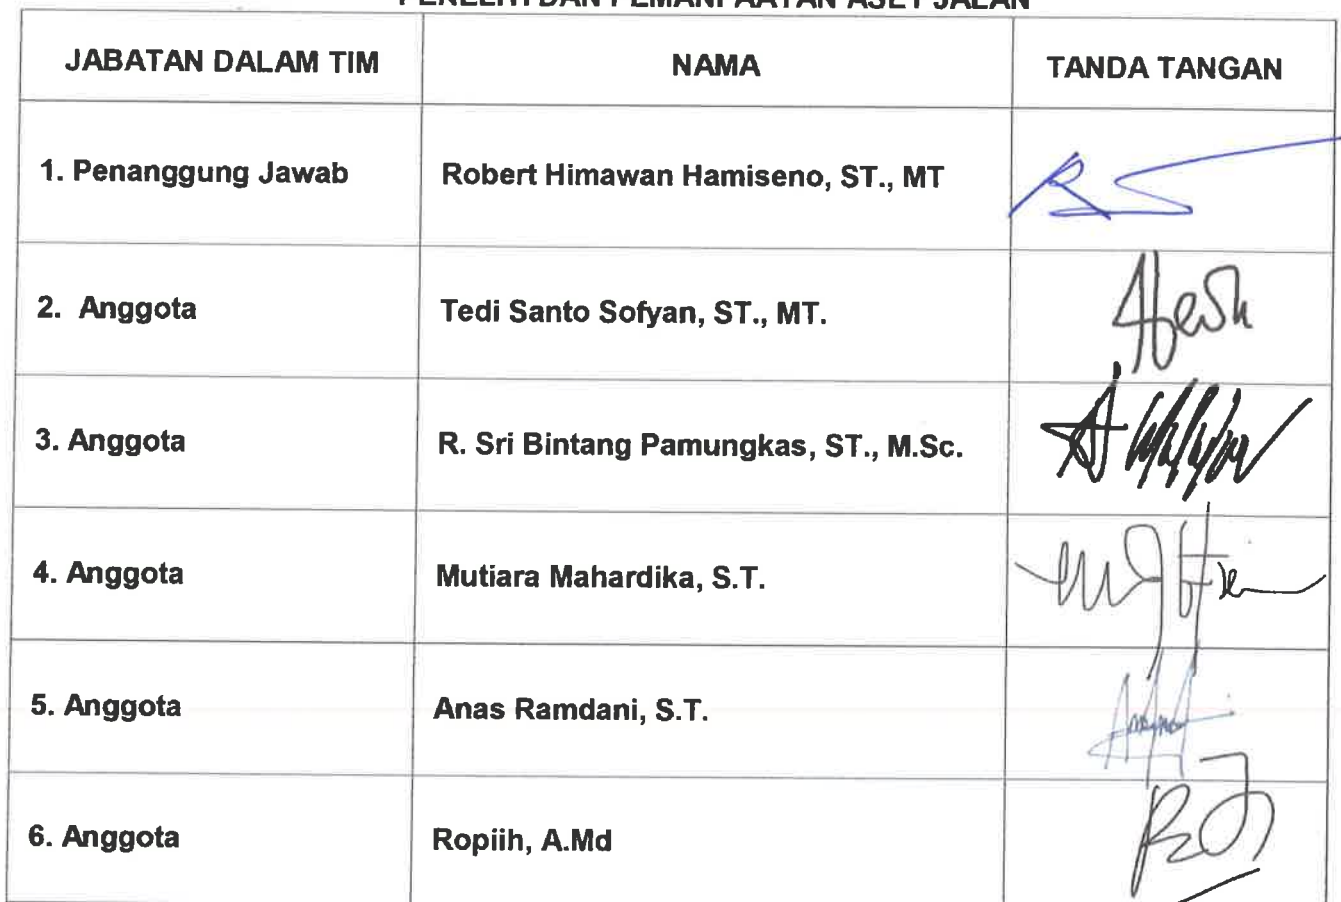 DAN PEMANFAATAN ASET JALAN
JABATAN DALAM TIM NAMA TANDA TANGAN
1. Penanggung Jawab Robert Himawan Hamiseno, ST., MT
2. Anggota Tedi Santo Sofyan, ST., MT.
3. Anggota R. Sri Bintang Pamungkas, ST., M.Sc.
4. Anggota Mutiara Mahardika, S.T.
5. Anggota Anas Ramdani, S.T.
6. Anggota Ropiih, A.Md